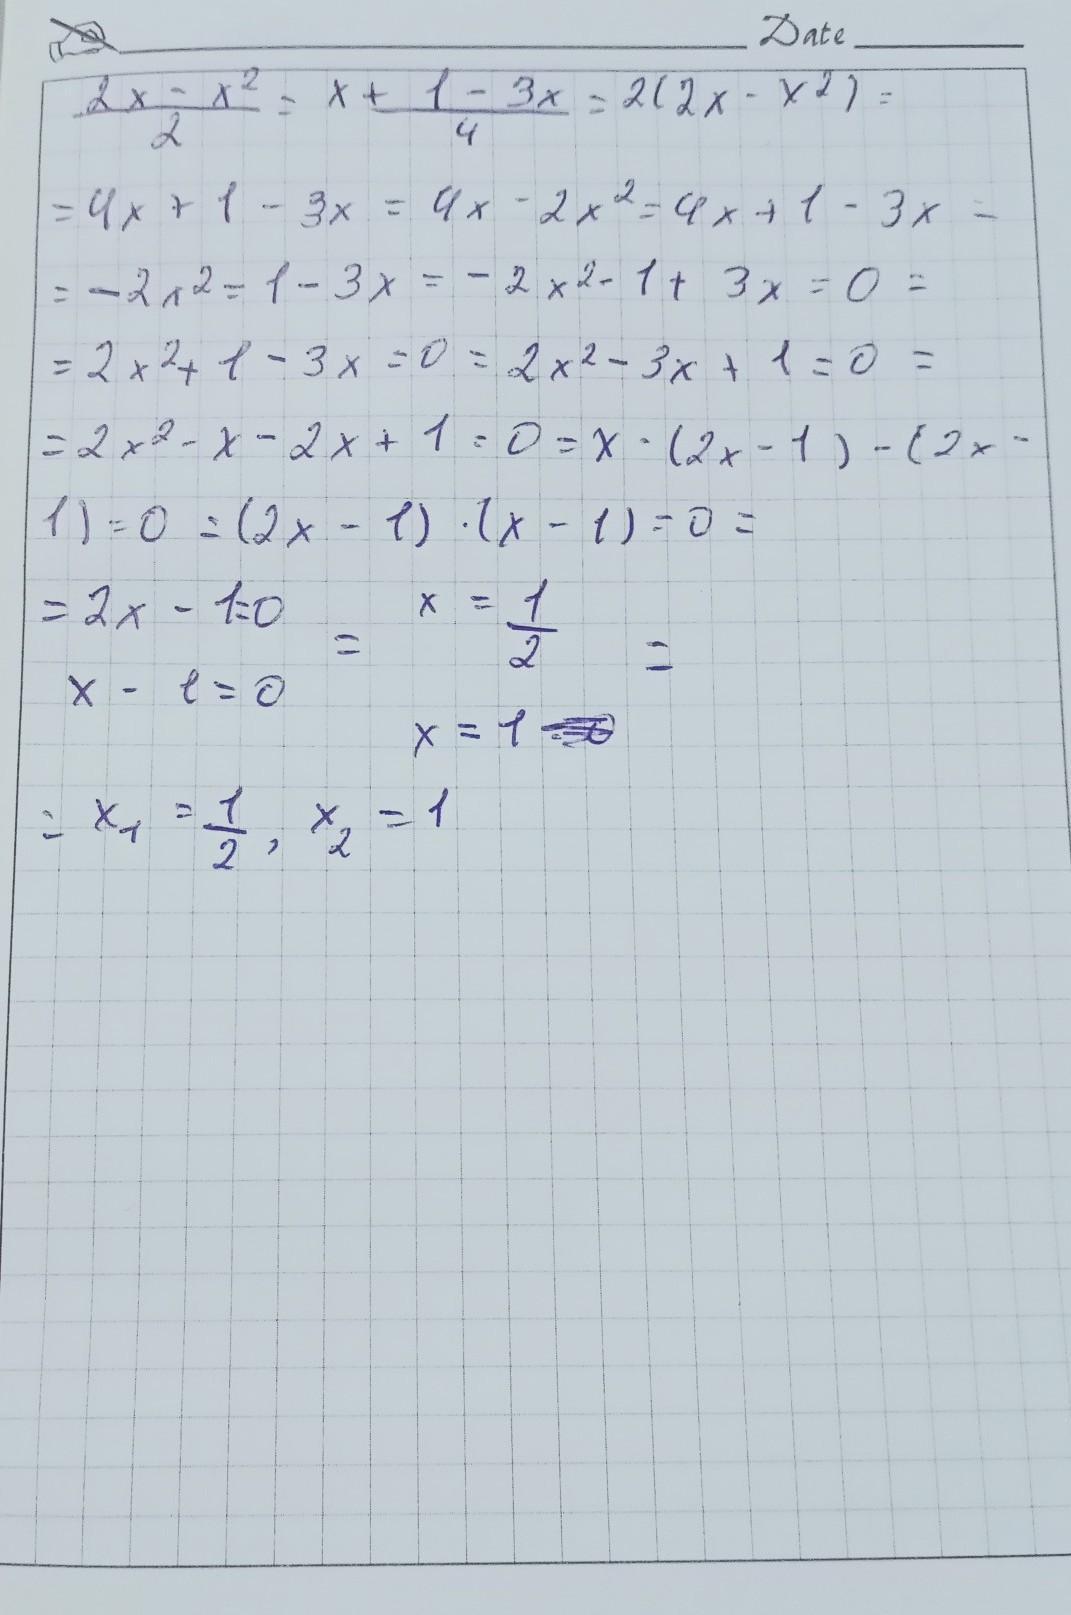 Date
2x - x² / 2 = x + 1 - 3x / 4 = 2(2x - x²) =
= 4x + 1 - 3x = 4x - 2x² = 4x + 1 - 3x =
= -2x² = 1 - 3x = -2x² - 1 + 3x = 0 =
= 2x² + 1 - 3x = 0 = 2x² - 3x + 1 = 0 =
= 2x² - x - 2x + 1 = 0 = x · (2x - 1) - (2x -
1) = 0 = (2x - 1) · (x - 1) = 0 =
= 2x - 1 = 0 = x = 1/2 =
x - 1 = 0
x = 1
= x₁ = 1/2, x₂ = 1